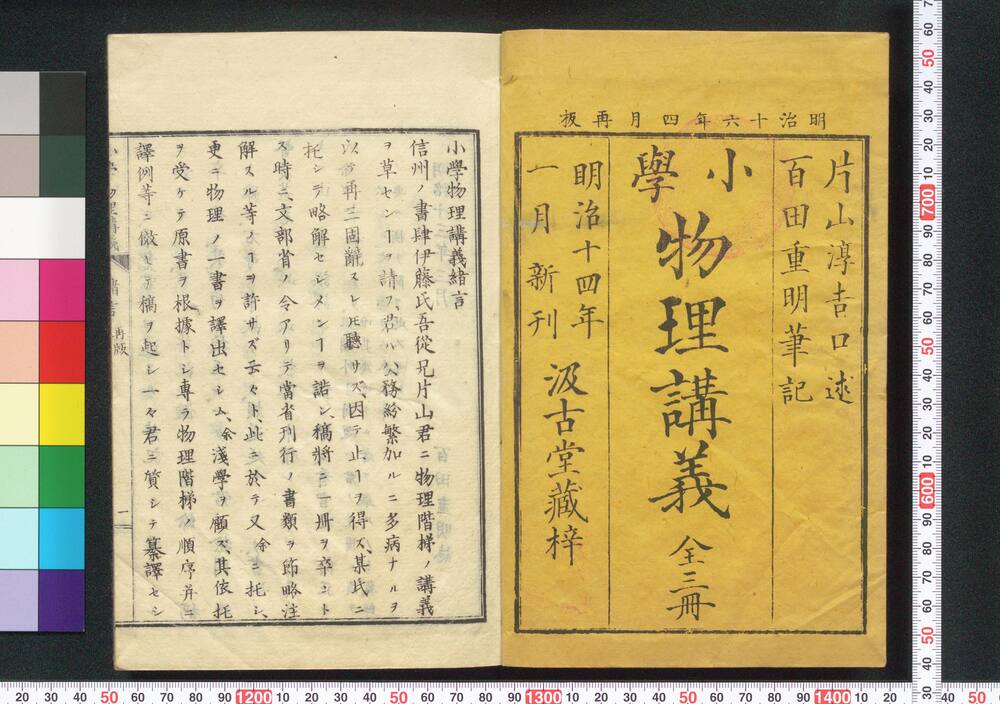 明治十六年四月再板
片山淳吉口述
百田重明筆記
小學
物理講義 全三冊
明治十四年
一月新刊
汲古堂藏梓
小學物理講義緒言
信州ノ書肆伊藤氏吾從兄片山君ニ物理階梯ノ講義
ヲ草センヿヲ請フ君ハ公務紛繁加ルニ多病ナルヲ
以テ再三固辭スレ𪜈聽サズ、因テ止ヿヲ得ズ、某氏ニ
托シテ略解セシメンヿヲ諾シ、稿將ニ一冊ヲ卒ントス
ス時ニ、文部省ノ令アリテ當省刊行ノ書類ヲ節略注
解スル等ノヿヲ許サズ云々ト、此ニ於テ又余ニ托シ、
更ニ物理ノ一書ヲ譯出セシム、余淺學ヲ顧ズ、其依托
ヲ受ケテ原書ヲ根據トシ專ラ物理階梯ノ順序并ニ
譯例等ニ倣ヒテ稿ヲ起シ一々君ニ質シテ纂譯セシ
緒言
再版
一